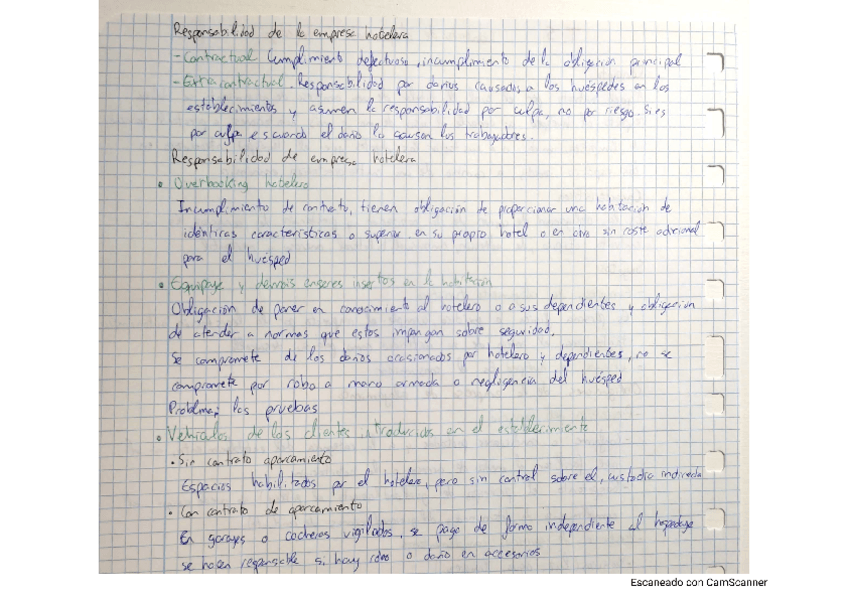 Responsabilidad de la empresa hotelera
- Contractual Cumplimiento defectuoso, incumplimiento de la obligación principal
- Extracontractual. Responsabilidad por daños causados a los huéspedes en los
establecimientos y asumen la responsabilidad por culpa, no por riesgo. Si es
por culpa es cuando el daño lo causan los trabajadores.
Responsabilidad de empresa hotelera
• Overbooking hotelero
Incumplimiento de contrato, tienen obligación de proporcionar una habitación de
idénticas características o superior en su propio hotel o en otro sin coste adicional
para el huésped
• Equipaje y demás enseres insertos en la habitación
Obligación de poner en conocimiento al hotelero o a sus dependientes y obligación
de atender a normas que estos impongan sobre seguridad.
Se compromete de los daños ocasionados por hotelero y dependientes, no se
compromete por robo a mano armada o negligencia del huésped
Problema: las pruebas
• Vehículos de los clientes introducidos en el establecimiento
• Sin contrato aparcamiento
Espacios habilitados por el hotelero, pero sin control sobre el, custodia indirecta
• Con contrato de aparcamiento
En garajes o cocheras vigilados, se paga de forma independiente al hospedaje
se hacen responsable si hay robo o daño en accesorios
Escaneado con CamScanner